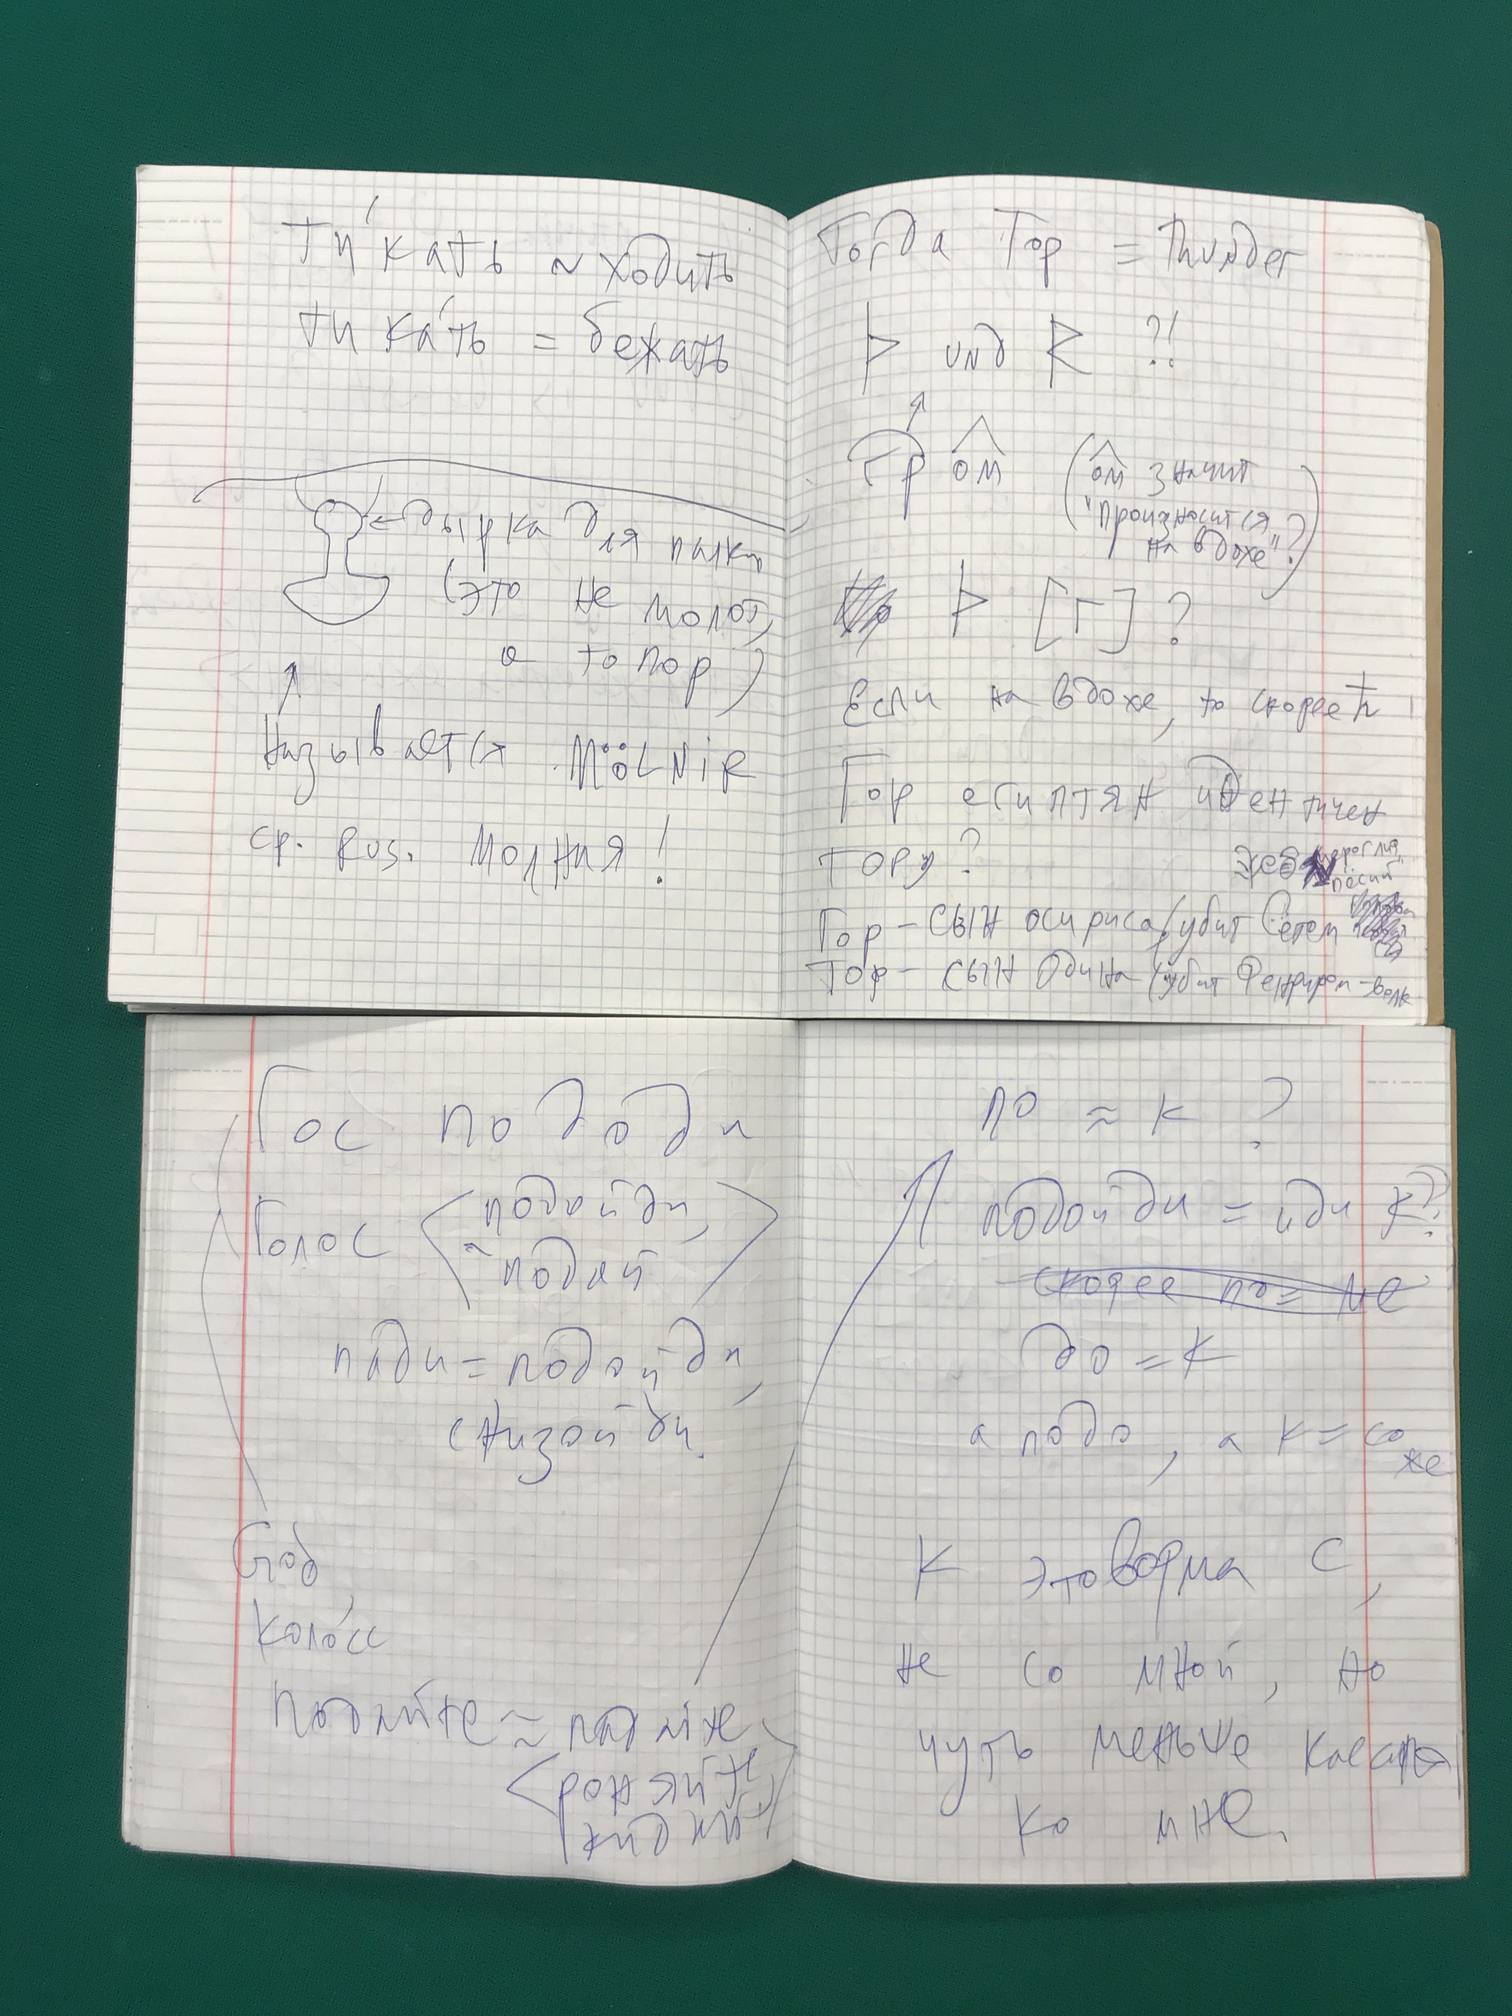 ти́кать ~ ходить
тика́ть = бежать
дырка для палки
(это не молот,
а топор)
Называется MÖLNIR
ср. RUS. молния!
Тогда Тор = Thunder
Þ und R ?!
гр ом (ом значит
"произносится
на вдохе"?)
Þ [г] ?
Если на вдохе, то скорее ħ
Гор египтян идентичен
тору?
Гор – сын осириса/убит Сетом
Тор – сын Одина/убит Фенриром-волк
Гос по доди
Голос < подойди,
подай >
пади = подойди,
снизойди.
God,
коло́сс
роняйте
по ≈ к ?
подойди = иди к?
скорее по = ме
до = к
а подо, а к = со
же
К это форма С,
не со мной, но
чуть меньше касаясь
ко мне.